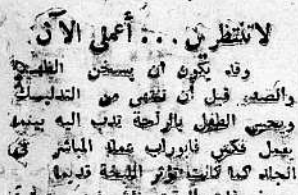 لا تنتظرن ... أعملي الآن
وقد يكون أن يسخن الظهر
والصدر قبل أن تنتهي من التدليك
ويحس الطفل بالراحة تدب اليه بينما
يعمل فكس فابوراب عمله المباشر في
الجلد كما كانت تؤثر اللبخة قديما